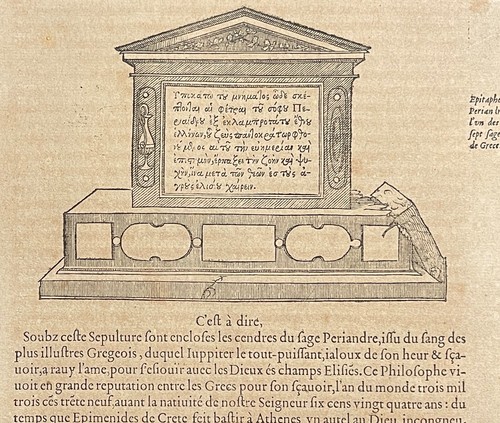 μνήματος ὧδε σκέ-
αἱ τοῦ σοφοῦ Πε-
ἐξ ἐκλαμπροτάτου
ὁ ζευς
αὐτοῦ τὴν εὐημερίαν καὶ
τὴν ζοὴν καὶ ψυ-
χὴν, ἵνα μετὰ τῶν θεῶν ἐς τοὺς ἀ-
γροὺς ἐλισίου χαίρειν.
Epitaphe
l'vn des
sept sage
de Grece
C'est à dire,
Soubz ceste Sepulture sont encloses les cendres du sage Periandre, issu du sang des
plus illustres Gregeois, duquel Iuppiter le tout-puissant, ialoux de son heur & sça-
uoir, a rauy l'ame, pour s'esiouir auec les Dieux és champs Elisiés. Ce Philosophe vi-
uoit en grande reputation entre les Grecs pour son sçauoir, l'an du monde trois mil
trois cés tréte neuf, auant la natiuité de nostre Seigneur six cens vingt quatre ans: du
temps que Epimenides de Crete, feit bastir à Athenes vn autel au Dieu incongneu,